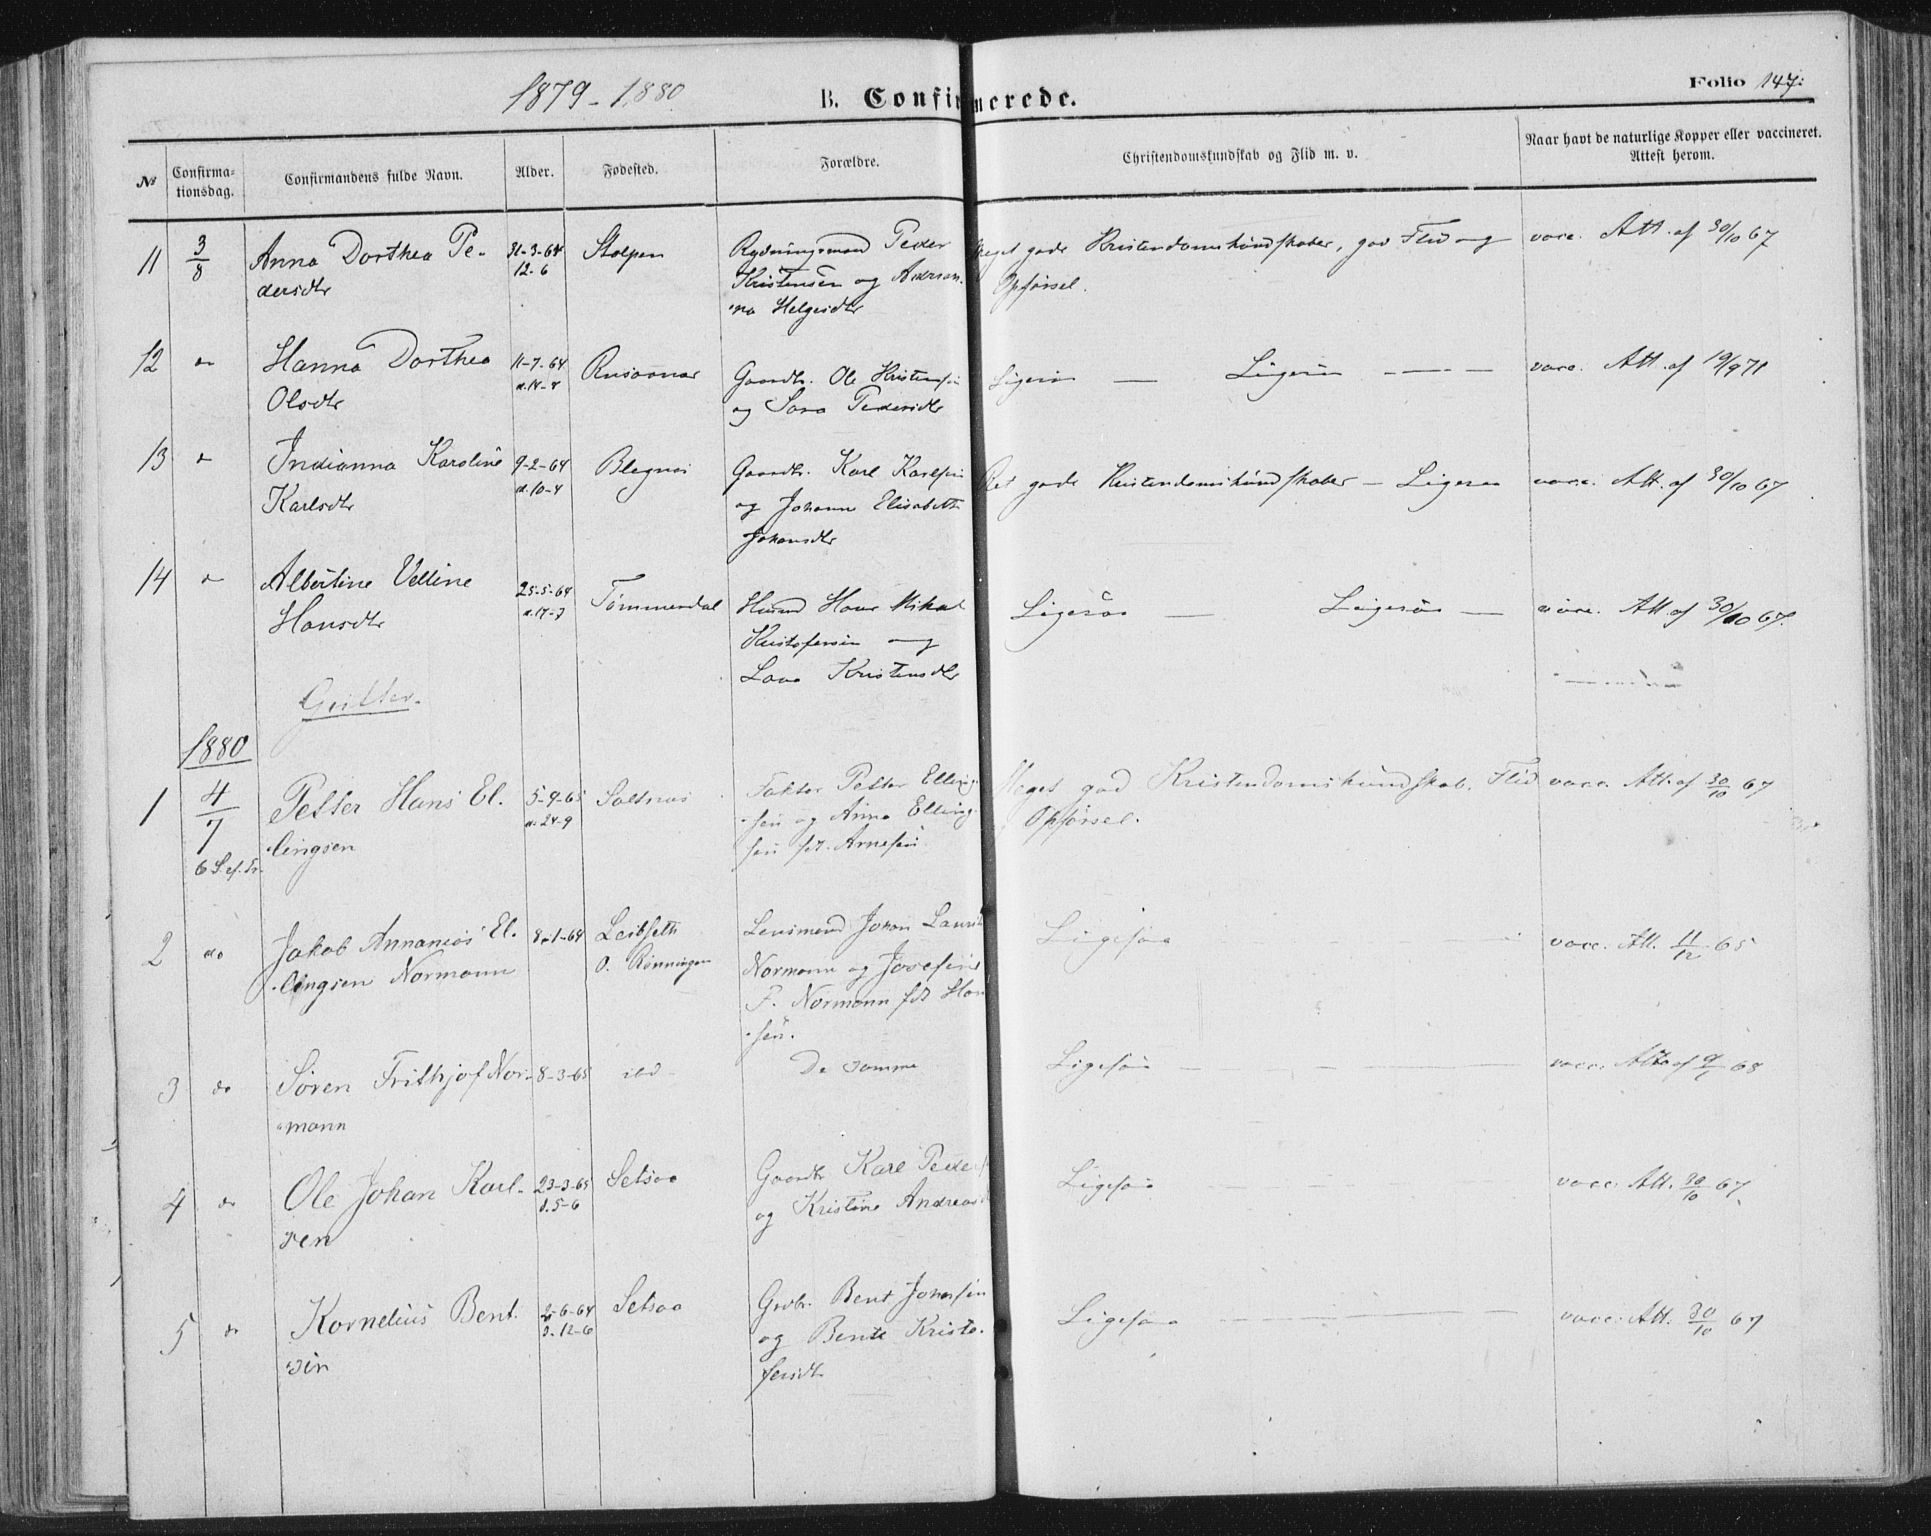 1879-1880
B. Confirmerede.
Folio 147.
№
Confirma-
tionsdag.
Confirmandens fulde Navn.
Alder.
Fødested.
Forældre.
Christendomskundskab og Flid m. v.
Naar havt de naturlige Kopper eller vaccineret.
Attest herom.
11 3/8 Anna Dorthea Pe- 31-3-64 Stolpen Rydningsmand Peder Meget gode Kristendomskundskaber, god Flid og vacc. Att. af 30/10 67
dersdtr 12-6 Kristensen og Adrian- Opførsel.
na Helgesdtr
12 do Hanna Dorthea 11-7-64 Gaardbr. Ole Kristensen Ligesaa — Ligesaa — — — vacc. Att. af 19/9 71
Olsdtr og Sara Pedersdtr
13 do Indianna Karoline 9-2-64 Blegnæs Gaardbr. Karl Karlsen Ret gode Kristendomskundskaber — Ligesaa vacc. Att. af 30/10 67
Karlsdtr d. 10-4 og Johanna Elisabeth
Johansdtr
14 do Albertine Velline 25-5-64 Tømmerdal Husmd Hans Mikal Ligesaa — Ligesaa — vacc. Att. af 30/10 67.
Hansdtr Kristofersen og
Lava Kristensdtr
Gutter.
1880
1 4/7 Petter Hans El- 5-9-65 Saltnæs Faktor Petter Elling- Meget god Kristendomskundskab. Flid vacc. Att. af 30/10 67
lingsen d. 24-9 sen og Anna Elling- Opførsel.
6 S. ef. Tr. sen fdt. Arnesen
2 do Jakob Annanias El- 8-1-64 Leibseth Lensmand Johan Laurits Ligesaa vacc. Att. 11/12 65
lingsen Normann O. Rønningen Normann og Josefine
F. Normann fdt Han-
sen.
3 do Søren Frithjof Nor- 8-3-65 ibd- De samme Ligesaa — — — vacc. Att. af 9/1 68
mann
4 do Ole Johan Karl- 23-3-65 Setsaa Gaardbr Karl Peders Ligesaa vacc. Att. 30/10 67
sen d. 5-6 og Kristine Andreas
5 do Kornelius Bent- 2-6-64 Setsaa Grdbr. Bent Jonassen Ligesaa vacc. Att. 30/10 67
sen d. 12-6 og Bente Kristo-
fersdtr